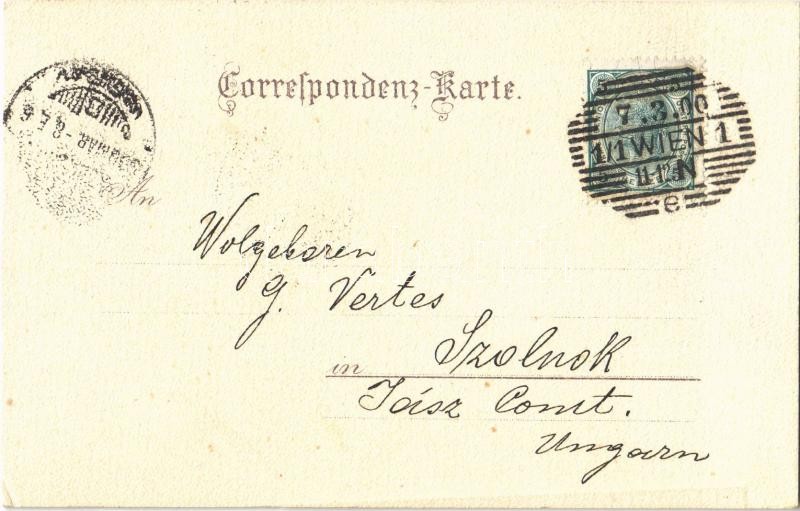 Correspondenz-Karte.
7.3.00
1/1 WIEN 1
11 N
e
An
Wolgeboren
G. Vertes
in Szolnok
Jász Comt.
Ungarn